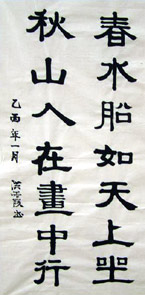 春水船如天上坐
秋山人在畫中行
乙酉年一月